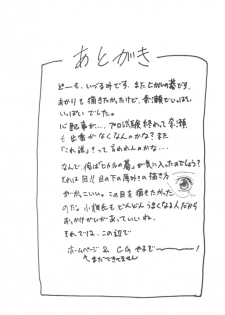 あとがき
どーも、いづみやです。またヒカルの碁です。
あかりも描きたかったけど、奈瀬でいっぱい
いっぱいでした。
心配事が…、プロ試験終わって奈瀬
も出番がなくなんのかな?また
「これ誰」って言われんのかな…
なんで、俺は「ヒカルの碁」が気に入ったのでしょう?
それは目!!目の下の
がかっこいい。この目を描きたかった
のだ。小畑氏もどんどんうまくなる人だから
おっかけがいがあっていいね。
それでは、この辺で
ホームページ & CG やるぞー!
まだできてません